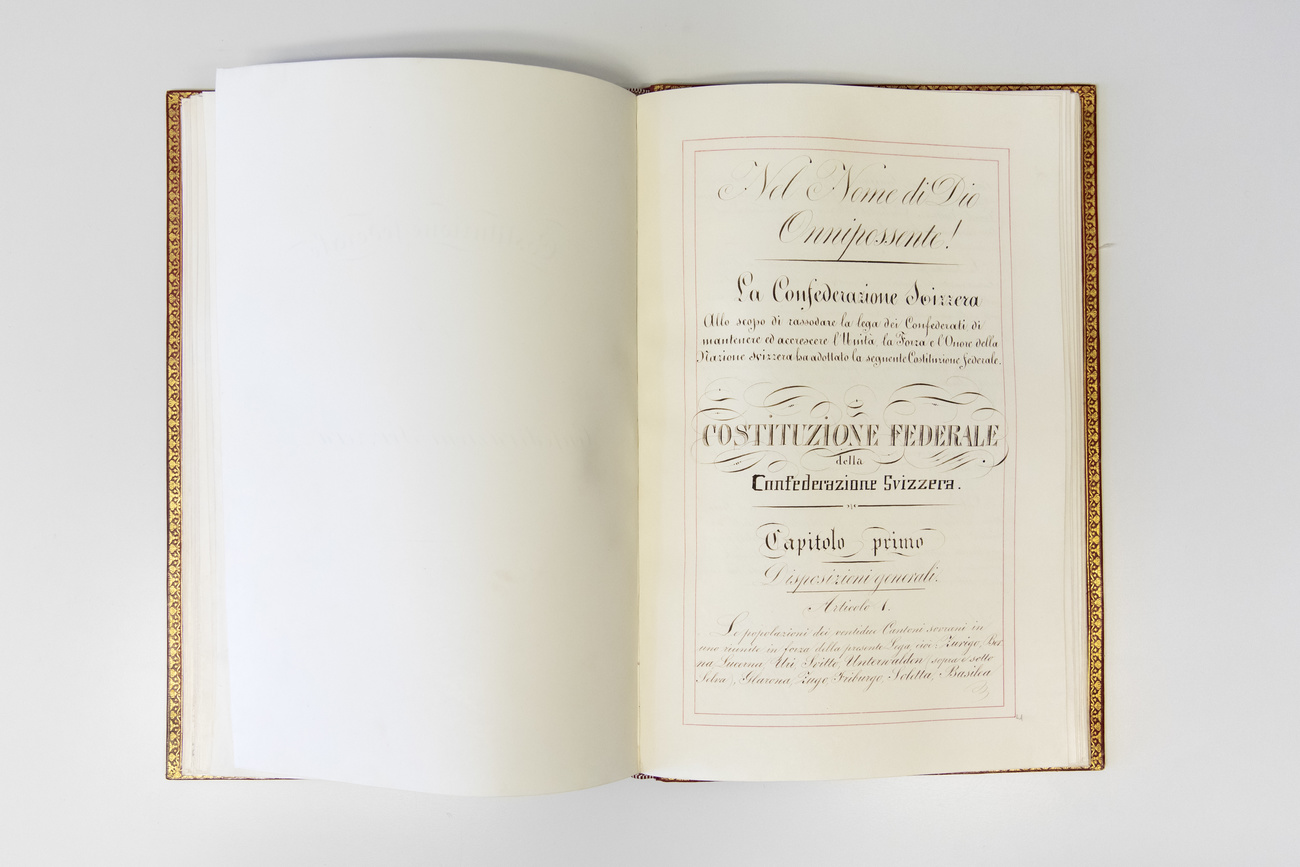 Nel Nome di Dio
Onnipossente!
La Confederazione Svizzera
Allo scopo di rassodare la lega dei Confederati, di
mantenere ed accrescere l'Unità, la Forza e l'Onore della
Nazione svizzera ha adottato la seguente Costituzione federale.
COSTITUZIONE FEDERALE
della
Confederazione Svizzera.
Capitolo primo
Disposizioni generali.
Articolo 1.
Le popolazioni dei ventidue Cantoni sovrani in
uno riunite in forza della presente Lega, cioè: Zurigo, Ber
na, Lucerna, Uri, Svitto, Unterwalden, (sopra e sotto
Selva), Glarona, Zugo, Friburgo, Soletta, Basilea